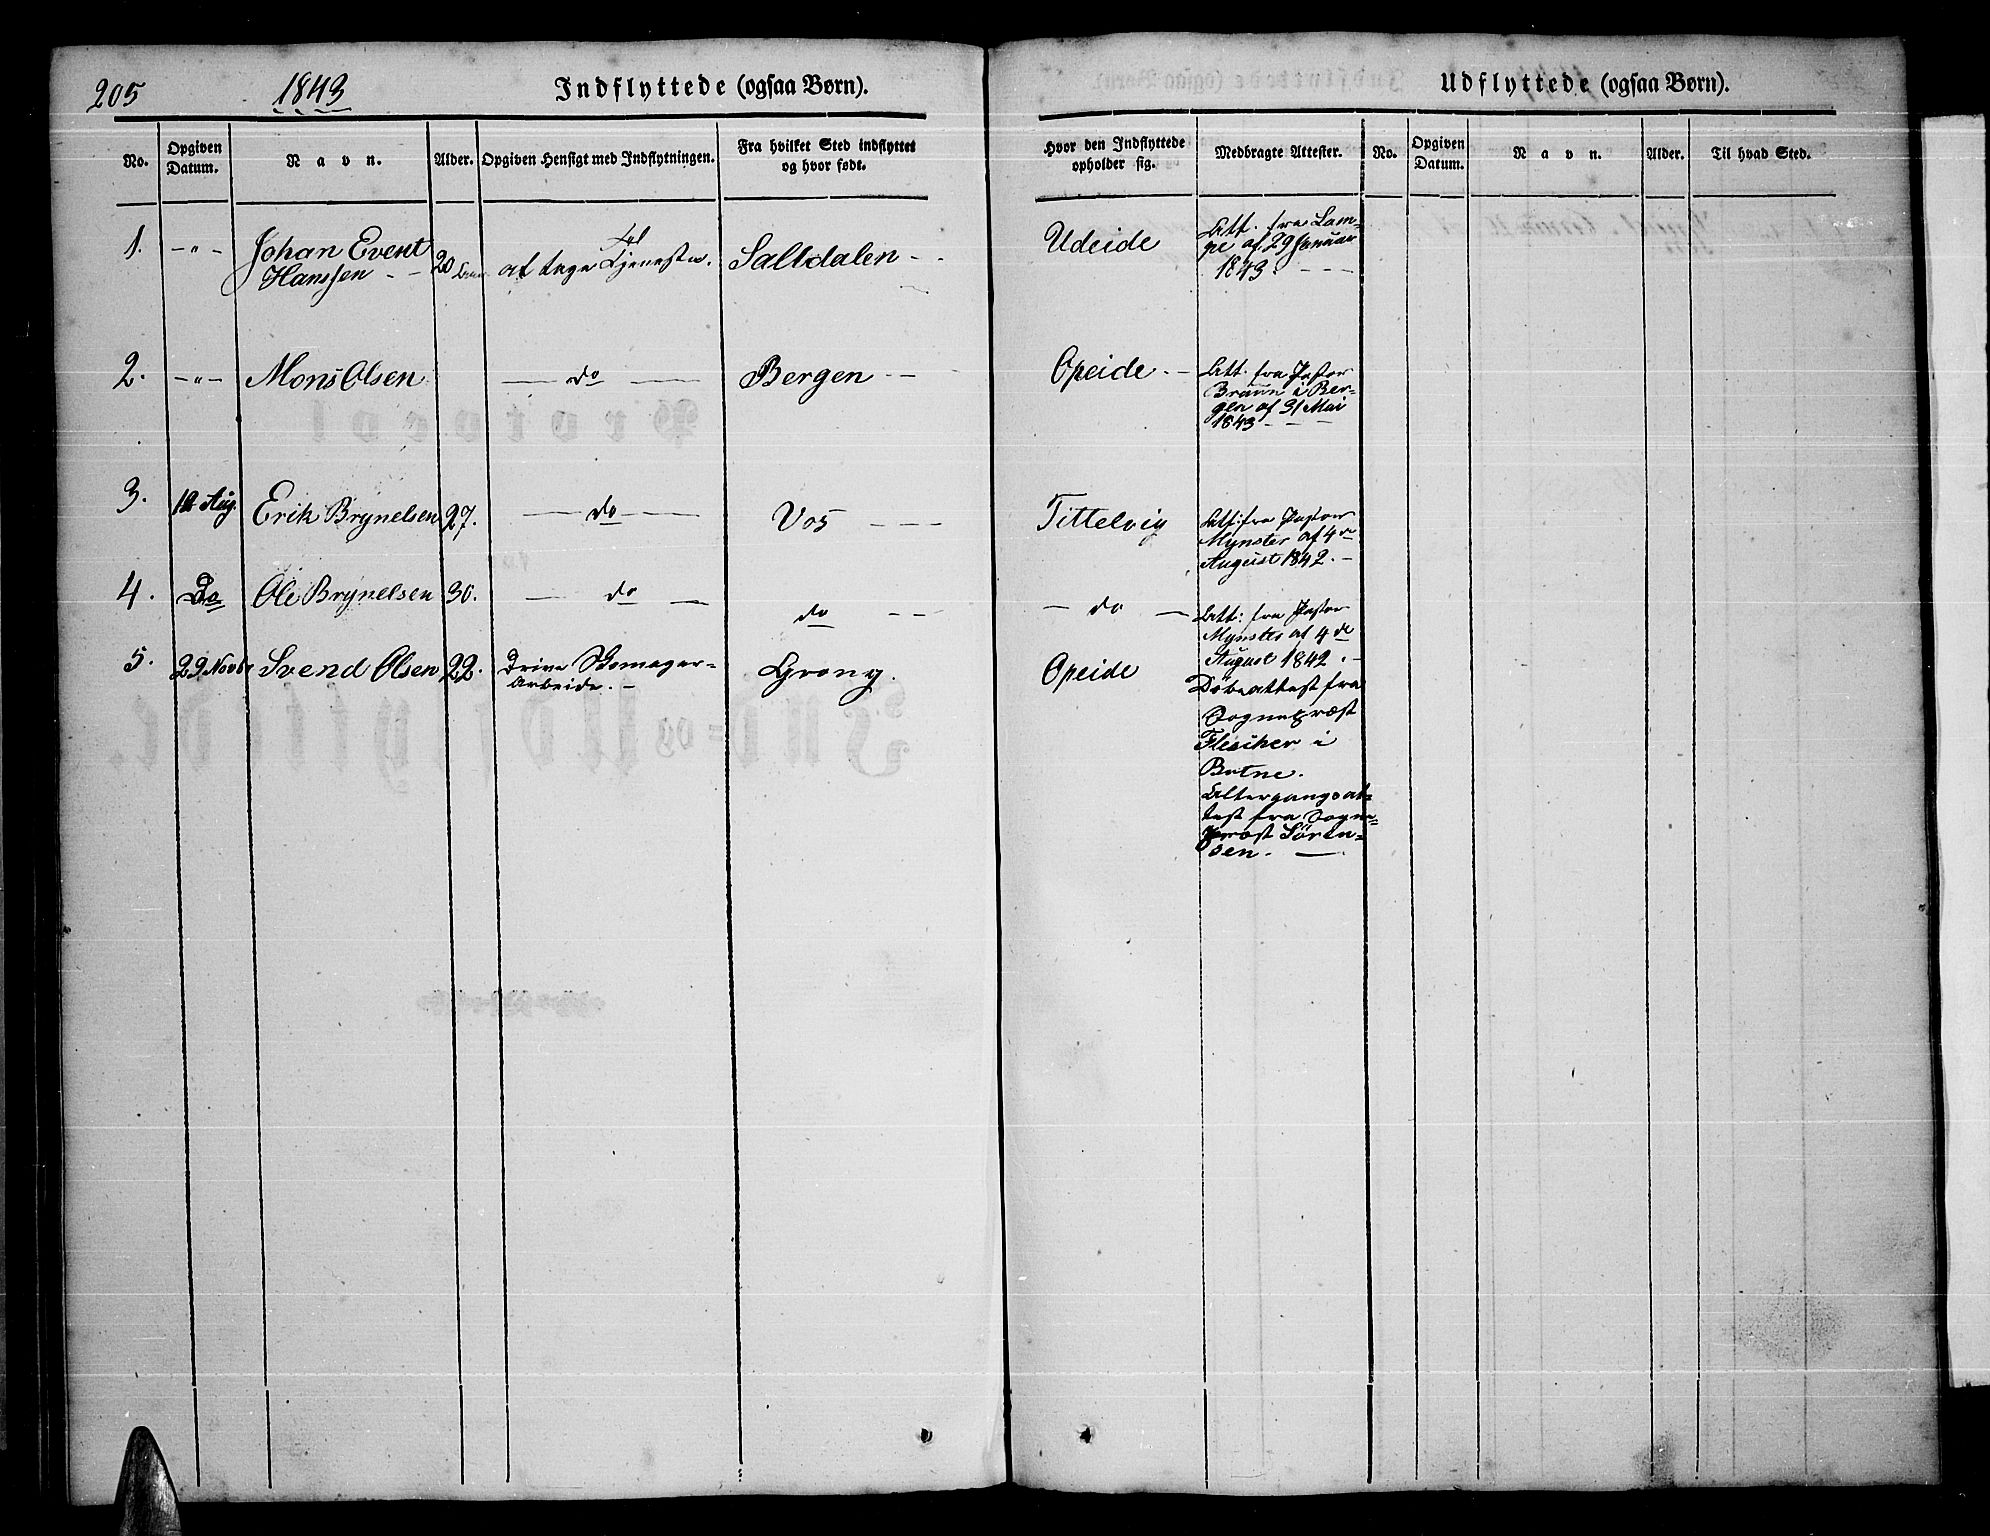 205
1843
Indflyttede (ogsaa Børn).
Udflyttede (ogsaa Børn).
No.
Opgiven Datum.
Navn.
Alder.
Opgiven Hensigt med Indflytningen.
Fra hvilket Sted indflyttet
og hvor født.
Hvor den Indflyttede
opholder sig.
Medbragte Attester.
No.
Opgiven Datum.
Navn.
Alder.
Til hvad Sted.
1. -"- Johan Event 20 Saltdalen - - Udeide
Hanssen - -
at tage Tjeneste.
Att. fra Lam-
pe af 29 Januar
1843. - - -
2. -"- Mons Olsen - do - Bergen - - Opeide. -
Att. fra Pastor
Bruun i Ber-
gen af 31 Mai
1843 - - -
3. Aug. Erik Brynelsen 27. - do - Vos - - - Tittelvig
Att: fra Pastor
Mynster af 4de
August 1842. -
4. Do Ole Brynelsen 30. - do - do - - - do -
Att: fra Pastor
Mynster af 4de
August 1842. -
5. 29 Novbr Svend Olsen 22. Drive Skomager-
Arbeide. -
Grong. Opeide
Døbeattest fra
Sognepræst
Fleischer i
Botne.
Altergangsat-
test fra Sogne-
præst Sören-
sen. -